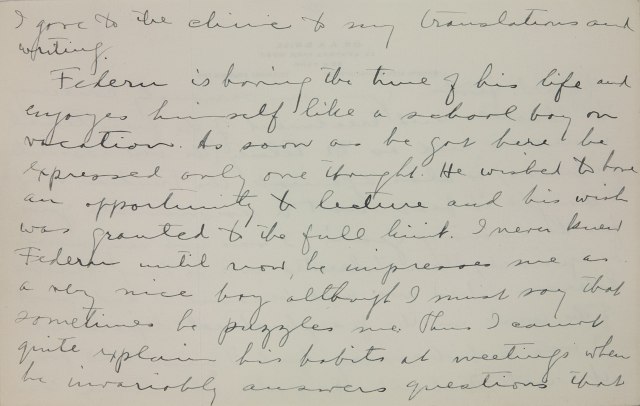 I gave to the clinic & to my translations and
writing.
Federn is having the time of his life and
enjoyes himself like a school boy on
vacation. As soon as he got here he
expressed only one thought. He wished to have
an opportunity to lecture and his wish
was granted to the full limit. I never knew
Federn until now, he impresses me as
a very nice boy although I must say that
sometimes he puzzles me. Thus I cannot
quite explain his habits at meetings when
he invariably answers questions that